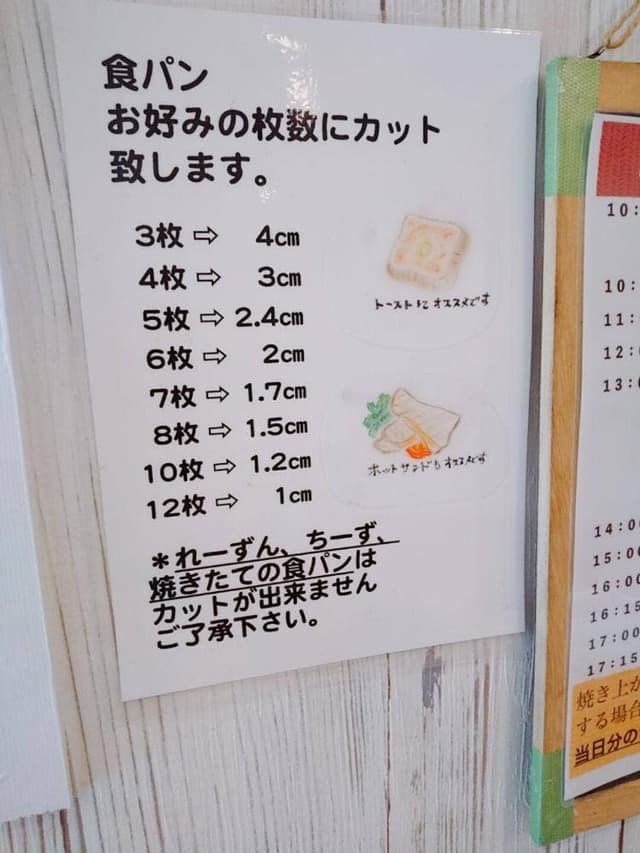 食パン
お好みの枚数にカット
致します。
3枚⇨ 4cm
4枚⇨ 3cm
5枚⇨ 2.4cm
6枚⇨ 2cm
7枚⇨ 1.7cm
8枚⇨ 1.5cm
10枚⇨ 1.2cm
12枚⇨ 1cm
トーストにオススメです
ホットサンドもオススメです
*れーずん、ちーず、
焼きたての食パンは
カットが出来ません
ご了承下さい。
10:
10:
11:
12:
13:
14:0
15:00
16:00
16:15
17:00
17:15
焼き上が
する場合
当日分の